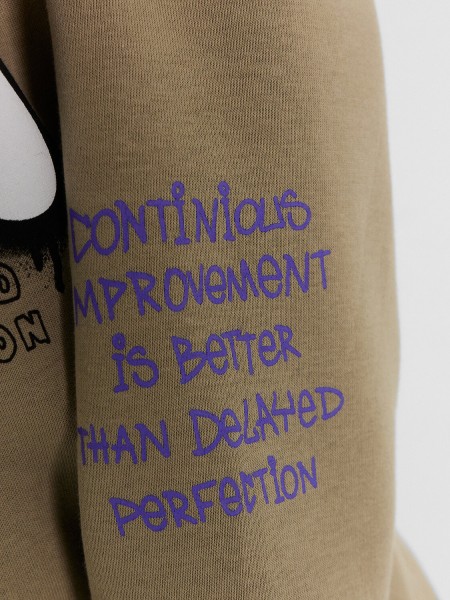 CONTINIOUS
MPROVEMENT
IS BETTER
THAN DELAYED
PERFECTION
D
ON